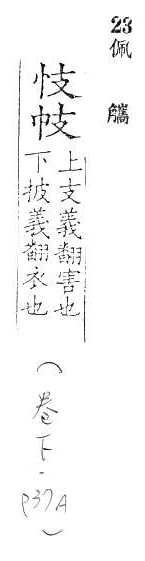 23
佩觿
忮
上支義翻害也
下披義翻衣也
(卷下·P37A)